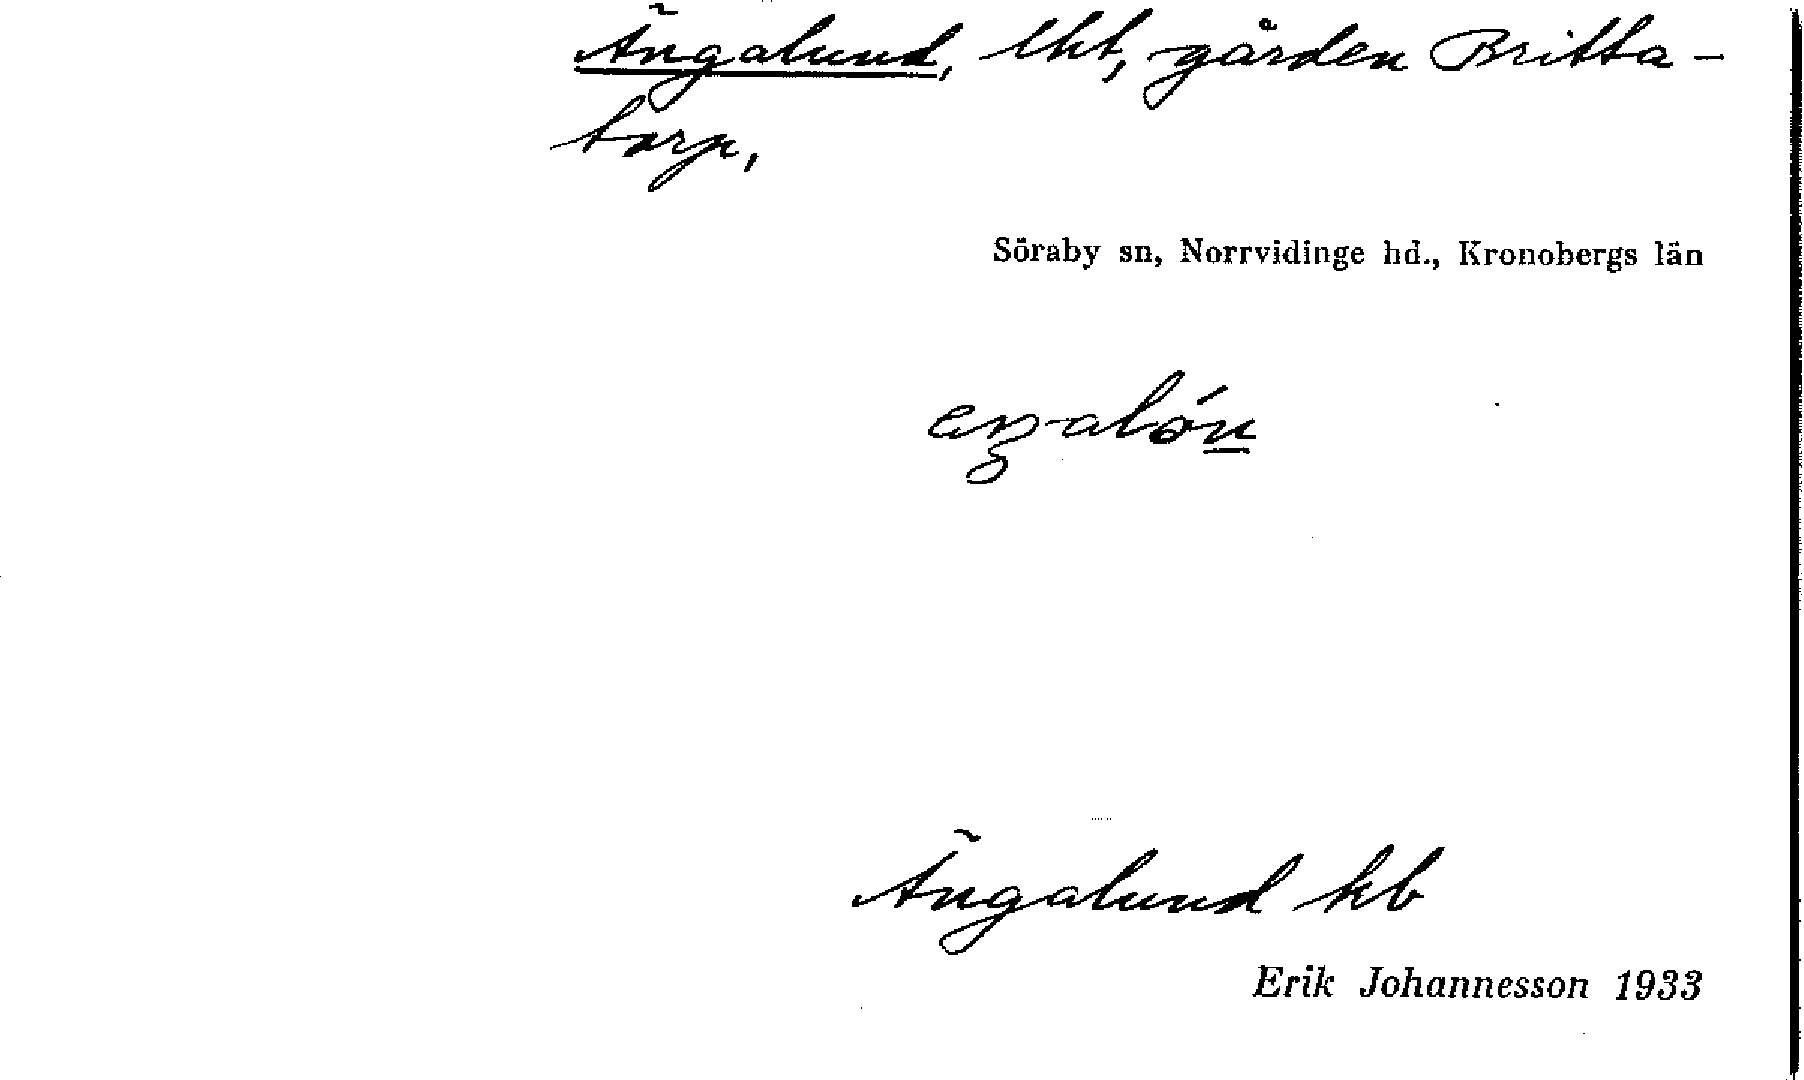 Ängalund, lht, gården Britta-
torp,
Söraby sn, Norrvidinge hd., Kronobergs län
Ängalund kb
Erik Johannesson 1933